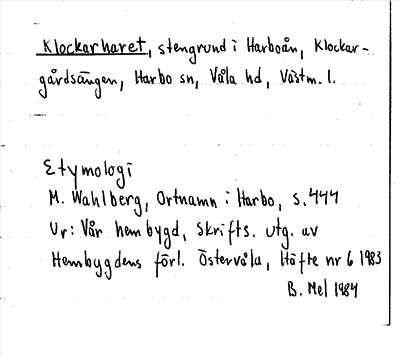 Klockarharet, stengrund i Harboån, Klockar-
gårdsängen, Harbo sn, Våla hd, Västm. l.
Etymologi
M. Wahlberg, Ortnamn i Harbo, s. 444
Ur: Vår hembygd, Skrifts. utg. av
Hembygdens förl. Östervåla, Häfte nr 6 1983
B. Mel 1984